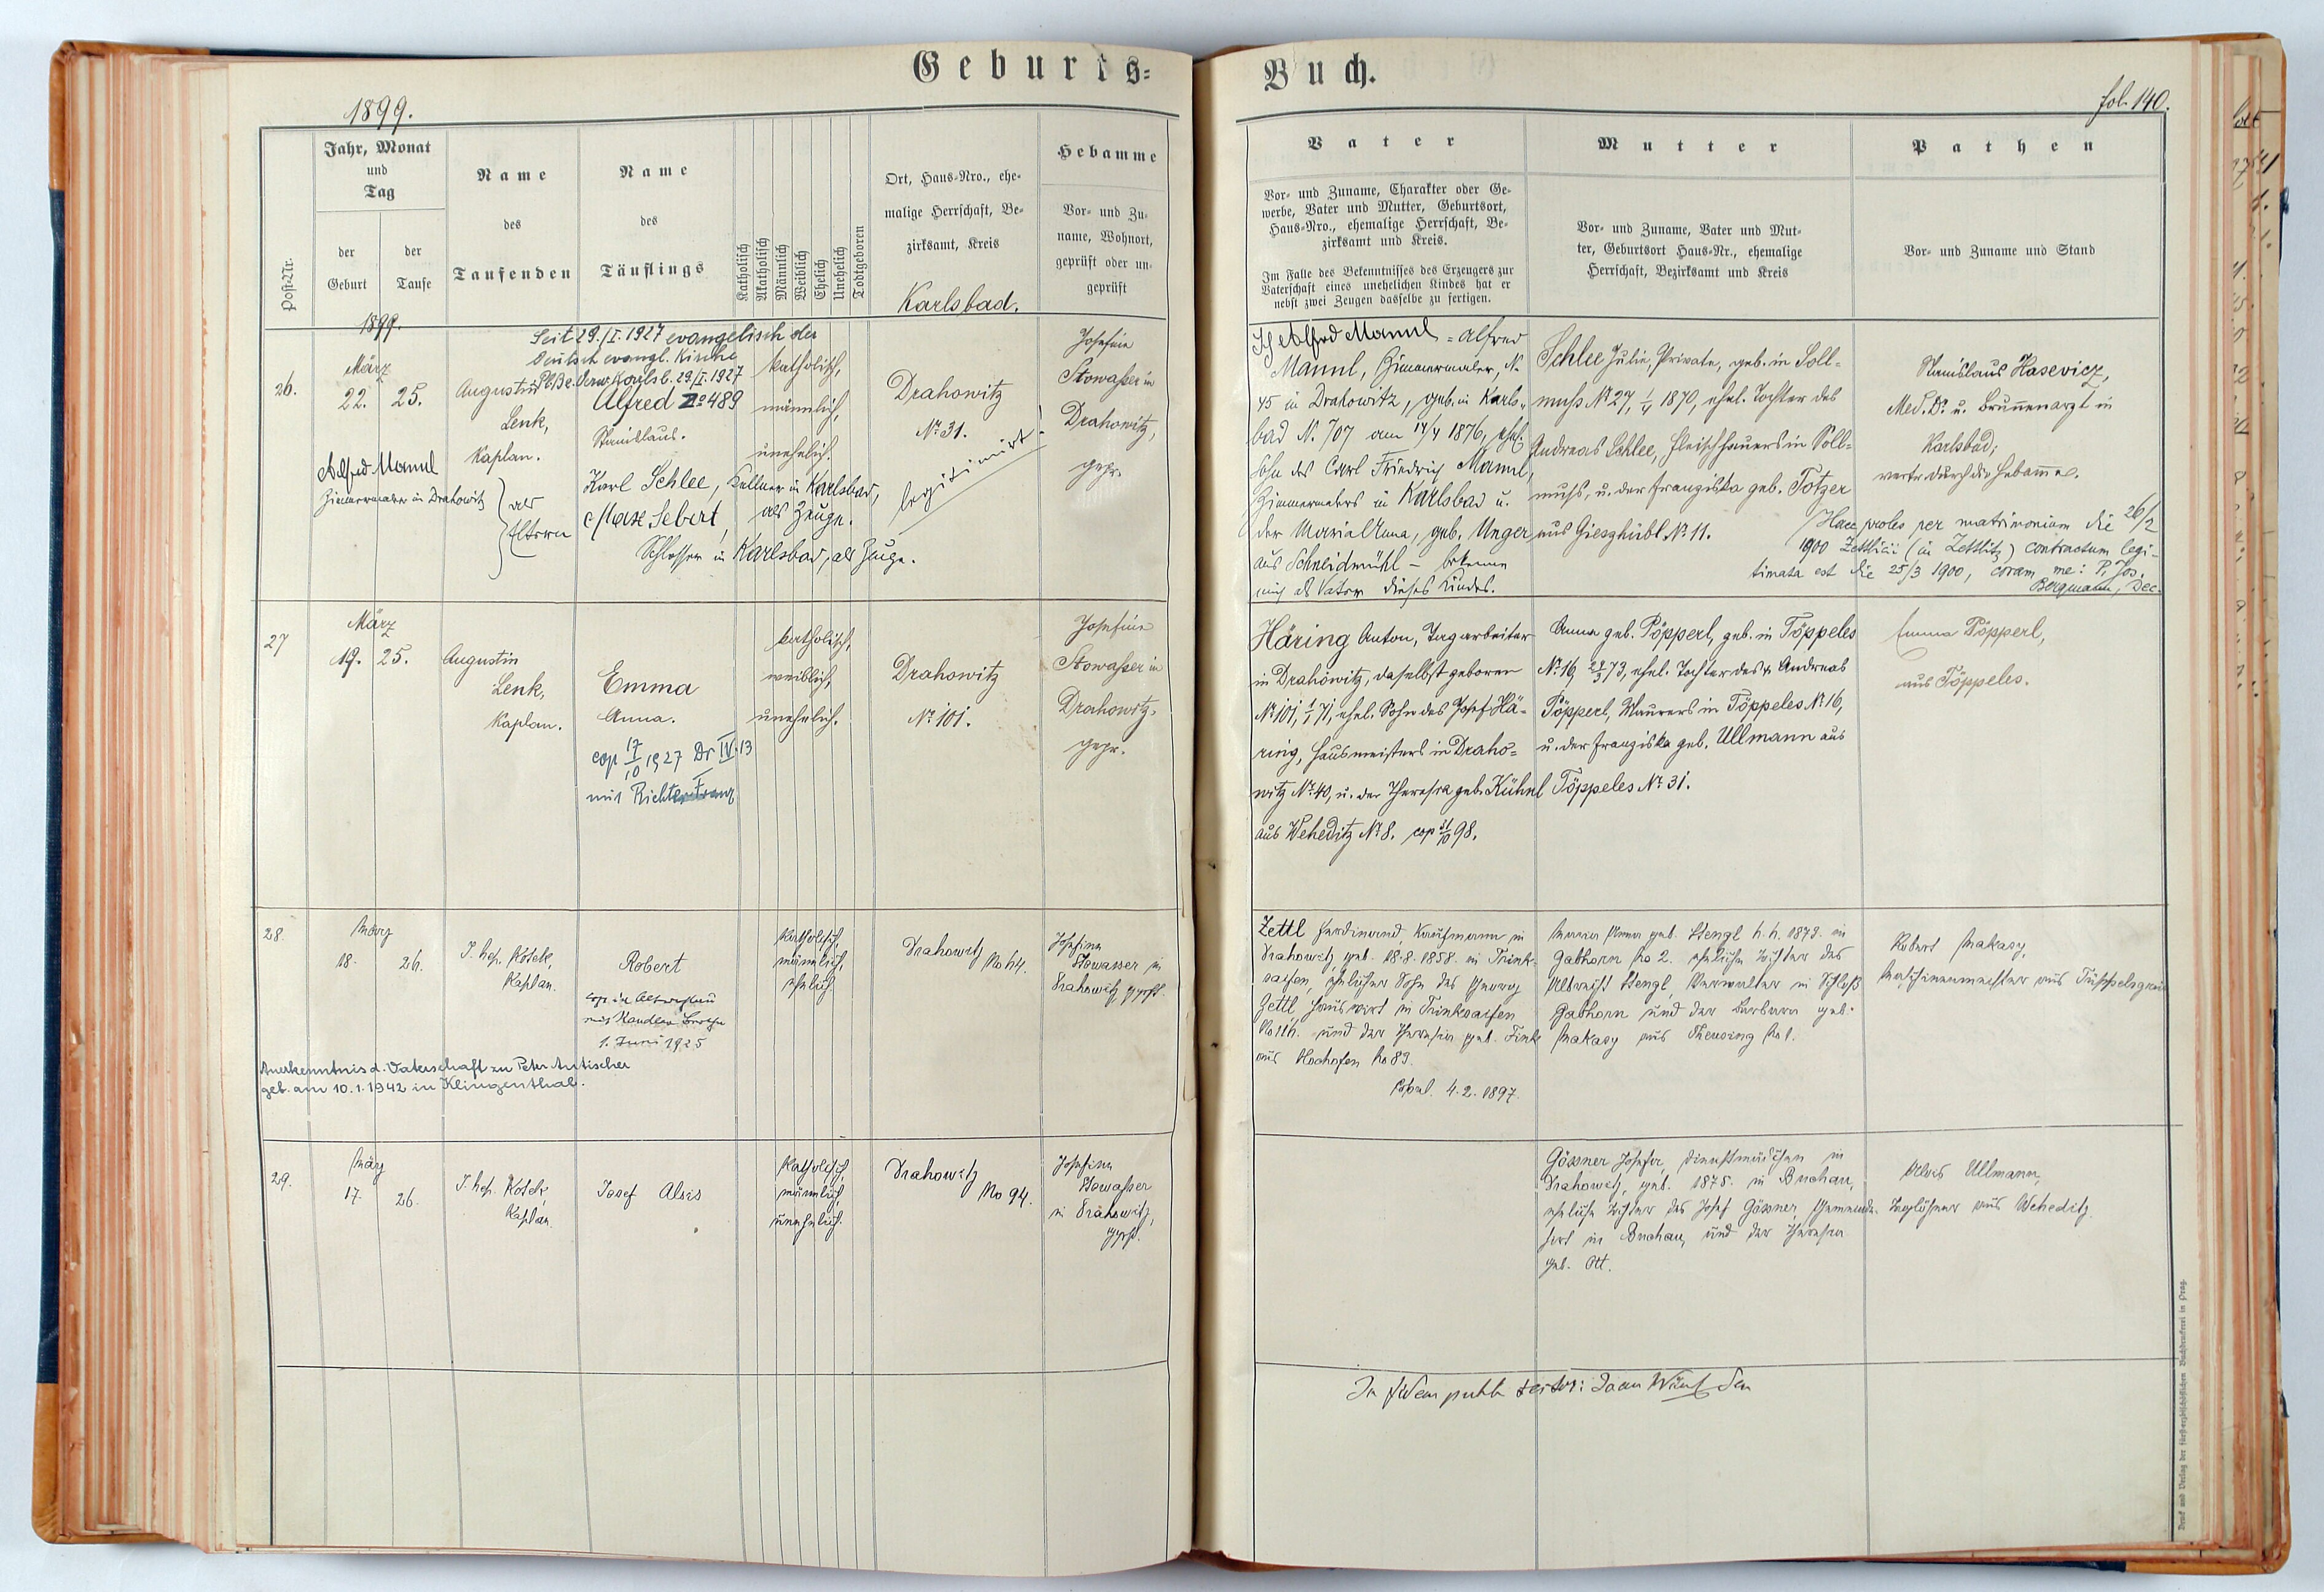 Geburts-
Buch.
1899.
fol. 140.
Post-Nr.
Jahr, Monat
und
Tag
der
Geburt
der
Taufe
Name
des
Taufenden
Name
des
Täuflings
Katholisch
Akatholisch
Männlich
Weiblich
Ehelich
Unehelich
Todtgeboren
Ort, Haus-Nro., ehe-
malige Herrschaft, Be-
zirksamt, Kreis
Karlsbad.
Hebamme
Vor- und Zu-
name, Wohnort,
geprüft oder un-
geprüft
Vater
Vor- und Zuname, Charakter oder Ge-
werbe, Vater und Mutter, Geburtsort,
Haus-Nro., ehemalige Herrschaft, Be-
zirksamt und Kreis.
Im Falle des Bekenntnisses des Erzeugers zur
Vaterschaft eines unehelichen Kindes hat er
nebst zwei Zeugen dasselbe zu fertigen.
Mutter
Vor- und Zuname, Vater und Mut-
ter, Geburtsort Haus-Nr., ehemalige
Herrschaft, Bezirksamt und Kreis
Pathen
Vor- und Zuname und Stand
1899.
26.
März
22. 25.
Augustin
Lenk,
Kaplan.
Seit 29./I. 1927 evangelisch der
Deutsch evangl. Kirche
Karlsb. 29./I. 1927
Alfred No 489
Stanislaus.
katholisch,
männlich,
unehelich.
Drahowitz
No 31.
legitimirt!
Josefine
Stowasser in
Drahowitz,
gepr.
Alfred Mannl
Zimmermaler in Drahowitz
als
Karl Schlee, Kellner in Karlsbad,
als Zeuge.
Max Sebert,
Schlosser in Karlsbad, als Zeuge.
Ich Alfred Mannl = Alfred
Mannl, Zimmermaler, N.
45 in Drahowitz, geb. in Karls-
bad N. 707 am 14/4 1876, ehel.
Sohn des Carl Friedrich Mannl,
Zimmermalers in Karlsbad u.
der Maria Anna, geb. Unger
aus Schneidmühl – bekenne
mich als Vater dieses Kindes.
Schlee Julie, Private, geb. in Soll-
muß No 27, 1/4 1870, ehel. Tochter des
Andreas Schlee, Fleischhauers in Soll-
muß, u. der Franziska geb. Totzer
aus Gieszhübl No 11.
Stanislaus Hasevicz,
Med. Dr. u. Brunnenarzt in
Karlsbad;
vertr. durch die Hebamme.
Haec proles per matrimonium die 26/2
1900 Zettlicii (in Zettlitz) contractum legi-
timata est die 25/3 1900, coram me: P. Jos.
Bergmann, Dec.
27
März
19. 25.
Augustin
Lenk,
Kaplan.
Emma
Anna.
cop 17/10 1927 Dr IV. 13
mit Richter Franz
katholisch,
weiblich,
unehelich.
Drahowitz
No 101.
Josefine
Stowasser in
Drahowitz,
gepr.
Häring Anton, Tagarbeiter
in Drahowitz, daselbst geboren
No 101, 1/1 71, ehel. Sohn des Josef Hä-
ring, Hausmeisters in Draho-
witz No 40, u. der Theresia geb. Kühnl
aus Weheditz No 8. cop 31/10 98.
Anna geb. Pöpperl, geb. in Töppeles
No 16, 29/3 73, ehel. Tochter des Andreas
Pöpperl, Maurers in Töppeles No 16,
u. der Franziska geb. Ullmann aus
Töppeles No 31.
Emma Pöpperl,
aus Töppeles.
28.
März
18. 26.
Kotek,
Kaplan.
Robert
cop. in
mit
1. Juni 1925
katholisch,
männlich,
ehelich.
Drahowitz No 64.
Josefine
Stowasser in
Drahowitz geprft.
Anerkenntnis d. Vaterschaft zu Peter Antischer
geb. am 10. 1. 1942 in Klingenthal.
Zettl Ferdinand, Kaufmann in
Drahowitz, geb. 18. 8. 1858. in Trink-
saifen, ehelicher Sohn des Georg
Zettl, Hauswirt in Trinksaifen
No 116. und der Theresia geb. Fink
aus Hochofen No 89.
Kopul. 4. 2. 1897.
Maria Anna geb. Stengl 6. 6. 1879. in
Gabhorn No 2. eheliche Tochter des
Albrecht Stengl, Verwalter in Schloß
Gabhorn und der Barbara geb.
Makasy aus Theusing No 1.
Robert Makasy,
Maschinenmeister aus Tüppelsgrün
29.
März
17. 26.
Kotek,
Kaplan.
Josef Alois
katholisch,
männlich,
unehelich.
Drahowitz
No 94.
Josefine
Stowasser
in Drahowitz,
gprft.
Gössner Josefa, Dienstmädchen in
Drahowitz, geb. 1878. in Buchau,
eheliche Tochter des Josef Gössner, Gemeinde-
hirt in Buchau, und der Theresia
geb. Ott.
Alois Ullmann,
Taglöhner aus Weheditz.
Druck und Verlag der fürsterzbischöflichen Buchdruckerei in Prag.